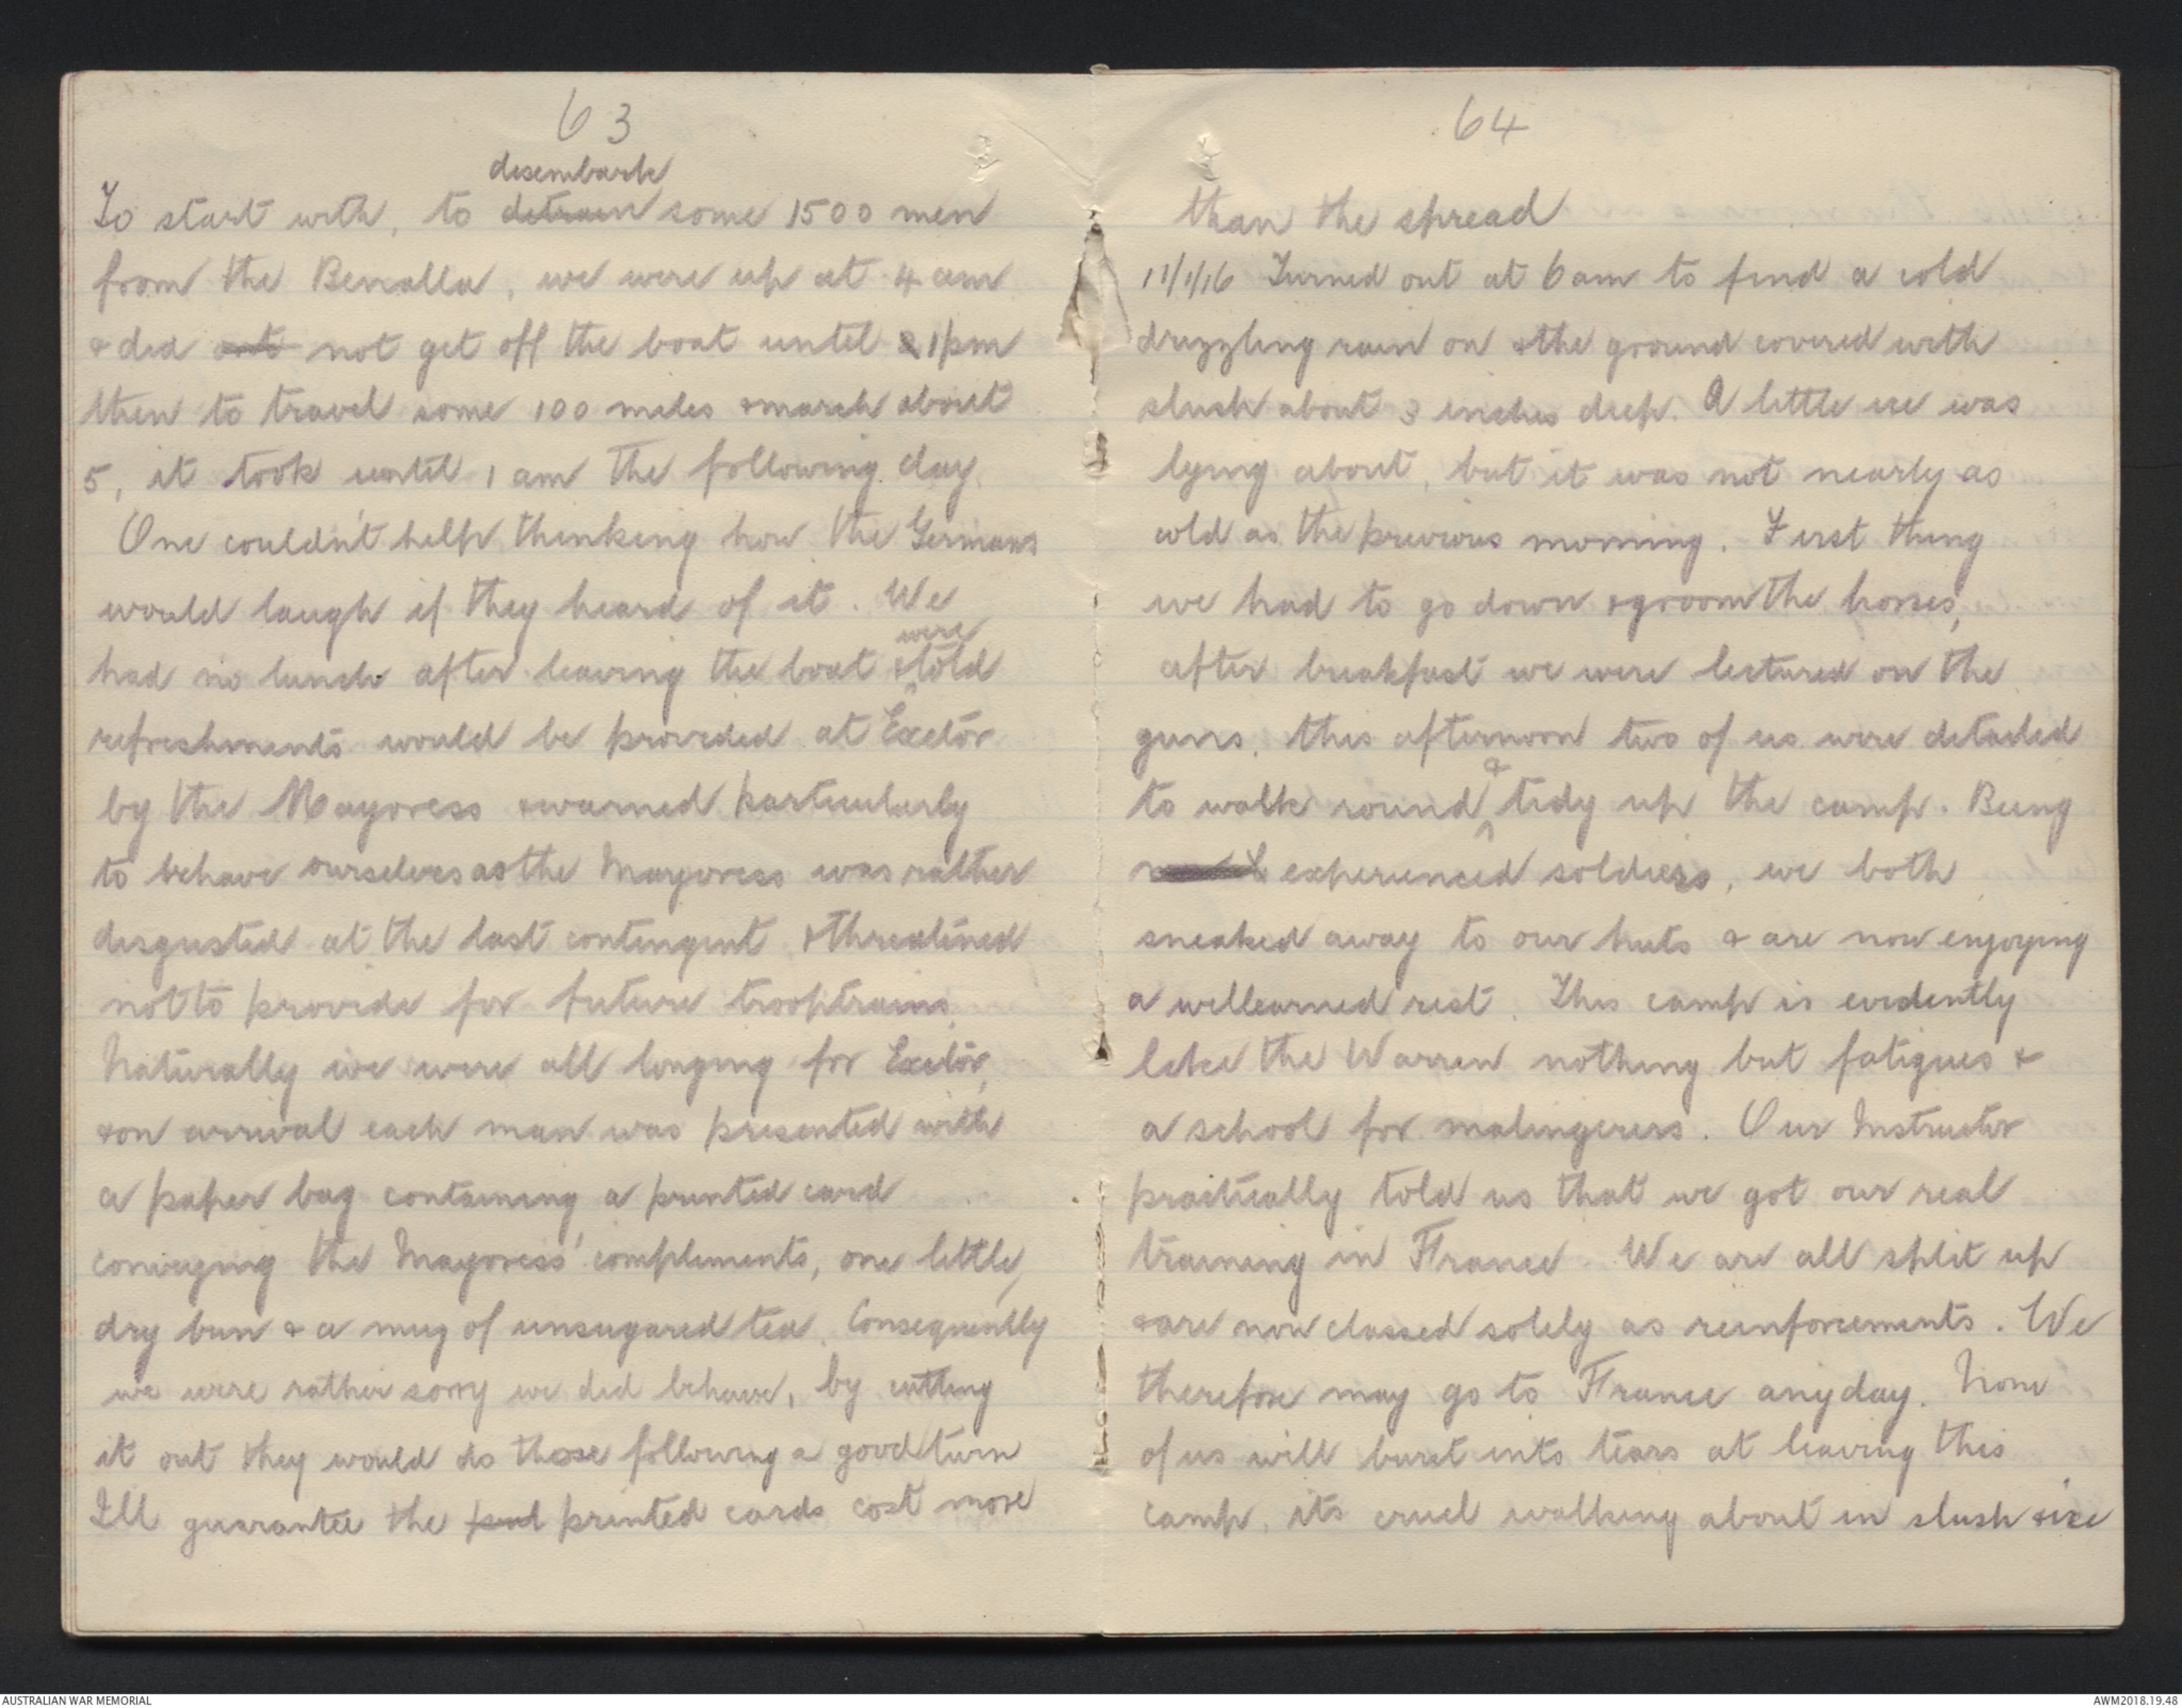 63
disembark
To start with, to detrain some 1500 men
from the Benalla, we were up at 4 am
& did not get off the boat until 1pm
then to travel some 100 miles & march about
5, it took until 1 am the following day.
One couldn't help thinking how the Germans
would laugh if they heard of it. We
were
had no lunch after leaving the boat & told
refreshments would be provided at Exetor
by the Mayoress & warned particularly
to behave ourselves as the Mayoress was rather
disgusted at the last contingent & threatened
not to provide for future trooptrains.
Naturally we were all longing for Exetor,
& on arrival each man was presented with
a paper bag containing a printed card
conveying the Mayoress' complements, one little,
dry bun & a mug of unsugared tea. Consequently
we were rather sorry we did behave, by cutting
it out they would do those following a good turn
I'll guarantee the printed cards cost more
64
than the spread
11/1/16 Turned out at 6 am to find a cold
drizzling rain on & the ground covered with
slush about 3 inches deep. A little ice was
lying about, but it was not nearly as
cold as the previous morning. First thing
we had to go down & groom the horses,
after breakfast we were lectured on the
guns. this afternoon two of us were detailed
&
to walk round tidy up the camp. Being
experienced soldiers, we both
sneaked away to our huts & are now enjoying
a wellearned rest. This camp is evidently
like the Warren nothing but fatigues &
a school for malingerers. Our Instructor
practically told us that we got our real
training in France. We are all split up
& are now classed solely as reinforcements. We
therefore may go to France anyday. None
of us will burst into tears at leaving this
camp. its cruel walking about in slush & ice
AUSTRALIAN WAR MEMORIAL
AWM2018.19.48